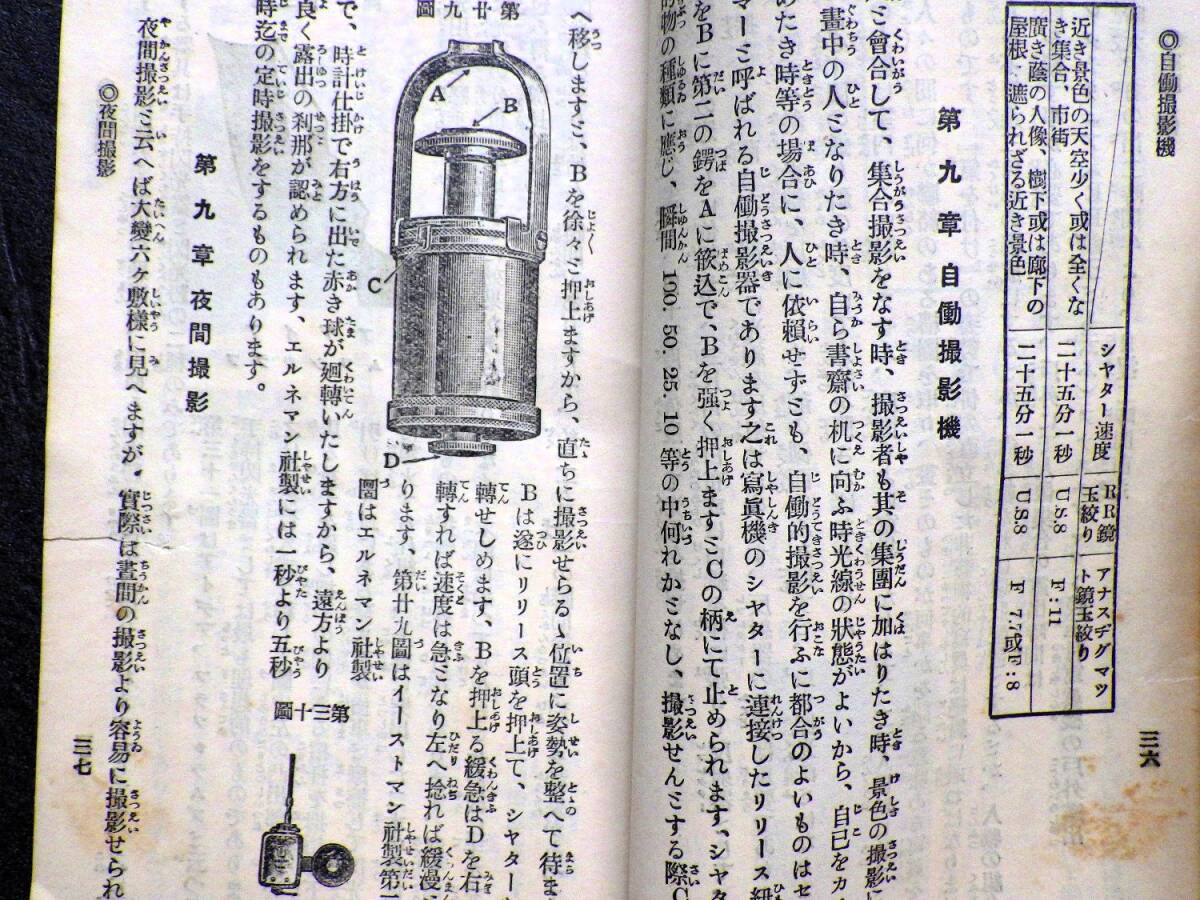 ◎自働撮影機
三六
シヤター速度
RR鏡玉絞り
アナスヂグマット鏡玉絞り
近き景色の天空少く或は全くなき集合、市街
二十五分一秒
U.S.8
F:11
廣き蔭の人像、樹下或は廊下の屋根 遮られざる近き景色
二十五分一秒
U.S.8
F 7.7或F:8
第九章 自働撮影機
ミ會合して、集合撮影をなす時、撮影者も其の集團に加はりたき時、景色の撮影に
畫中の人ミなりたき時、自ら書齋の机に向ふ時光線の狀態がよいから、自己をカ
めたき時等の場合に、人に依賴せずミも、自働的撮影を行ふに都合のよいものはセ
マーミ呼ばれる自働撮影器であります之は寫眞機のシヤターに連接したリリース紐
をBに第二の鍔をAに篏込で、Bを强く押上ますミCの柄にて止められます、シヤタ
的物の種類に應じ、瞬間 100. 50. 25. 10 等の中何れかミなし、撮影せんミする際C
へ移しますミ、Bを徐々ミ押上ますから、直ちに撮影せらるゝ位置に姿勢を整へて待ま
第廿九圖
A
B
C
D
Bは遂にリリース頭を押上て、シヤター
轉せしめます、Bを押上る緩急はDを右
轉すれば速度は急ミなり左へ捻れば緩漫
ります、第廿九圖はイーストマン社製第一
圖はエルネマン社製
第三十圖
で、時計仕掛で右方に出た赤き球が廻轉いたしますから、遠方より
良く露出の刹那が認められます、エルネマン社製には一秒より五秒
時迄の定時撮影をするものもあります。
第九章 夜間撮影
夜間撮影ミ云へば大變六ケ敷樣に見へますが、實際は晝間の撮影より容易に撮影せられ
◎夜間撮影
三七